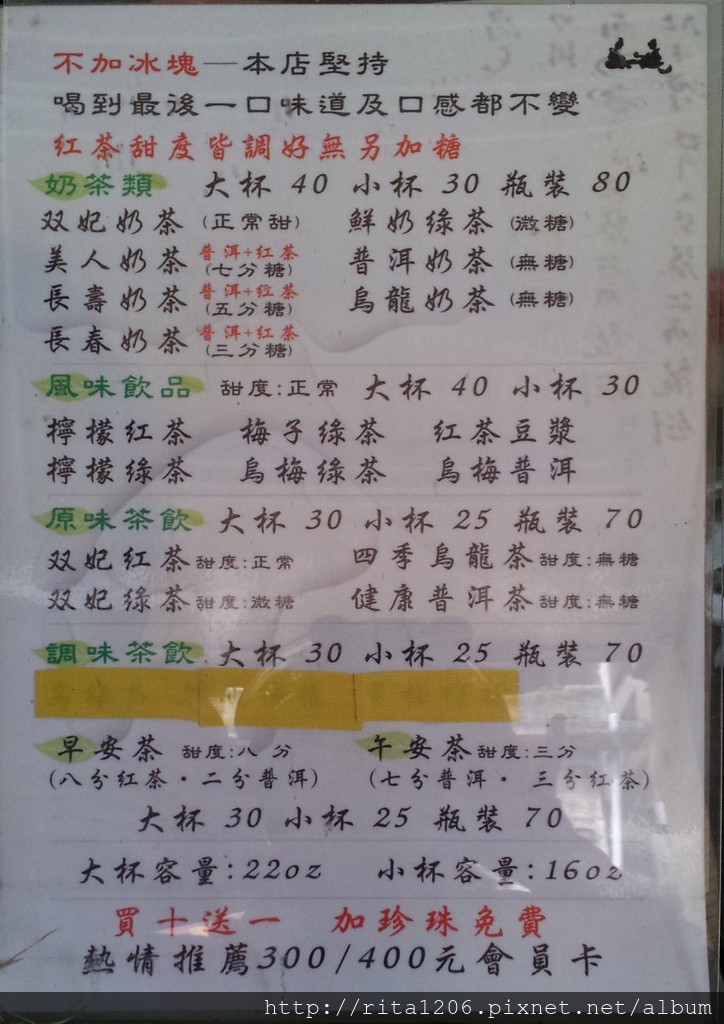 不加冰塊—本店堅持
喝到最後一口味道及口感都不變
紅茶甜度皆調好無另加糖
奶茶類 大杯 40 小杯 30 瓶裝 80
双妃奶茶 (正常甜) 鮮奶綠茶 (微糖)
美人奶茶 普洱+紅茶 (七分糖) 普洱奶茶 (無糖)
長壽奶茶 普洱+紅茶 (五分糖) 烏龍奶茶 (無糖)
長春奶茶 普洱+紅茶 (三分糖)
風味飲品 甜度:正常 大杯 40 小杯 30
檸檬紅茶 梅子綠茶 紅茶豆漿
檸檬綠茶 烏梅綠茶 烏梅普洱
原味茶飲 大杯 30 小杯 25 瓶裝 70
双妃紅茶 甜度:正常 四季烏龍茶 甜度:無糖
双妃綠茶 甜度:微糖 健康普洱茶 甜度:無糖
調味茶飲 大杯 30 小杯 25 瓶裝 70
早安茶 甜度:八分 午安茶 甜度:三分
(八分紅茶·二分普洱) (七分普洱·三分紅茶)
大杯 30 小杯 25 瓶裝 70
大杯容量:22oz 小杯容量:16oz
買十送一 加珍珠免費
熱情推薦300/400元會員卡
http://rita1206.pixnet.net/album